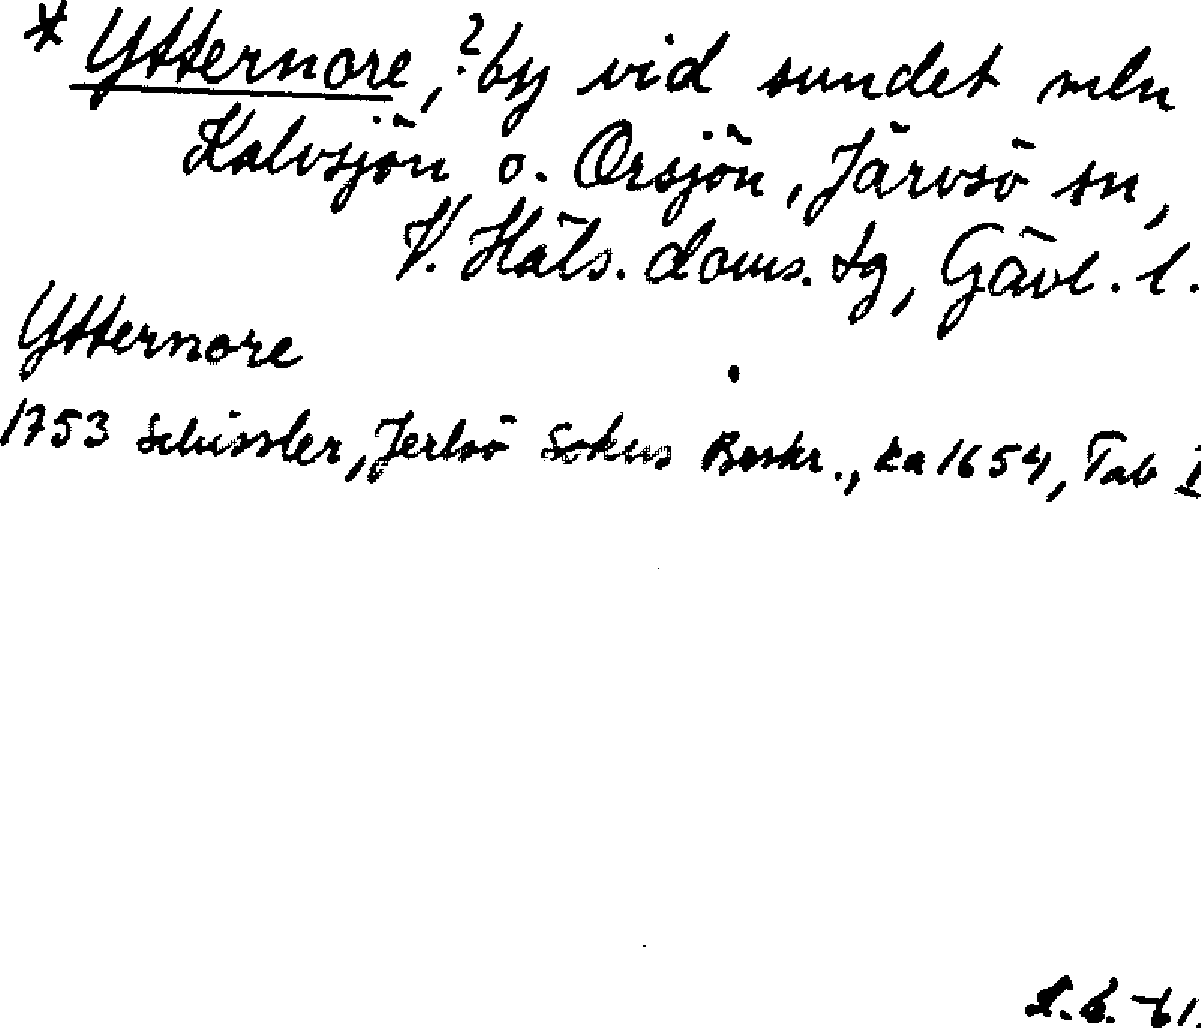 * Ytternore, ?by vid sundet mln
Kalvsjön o. Orsjön, Järvsö sn,
V. Häls. doms. tg, Gävl. l.
Ytternore
1753 Schissler, Jerlsö Sokns Beskr., ka 1654, Tab I
-61.